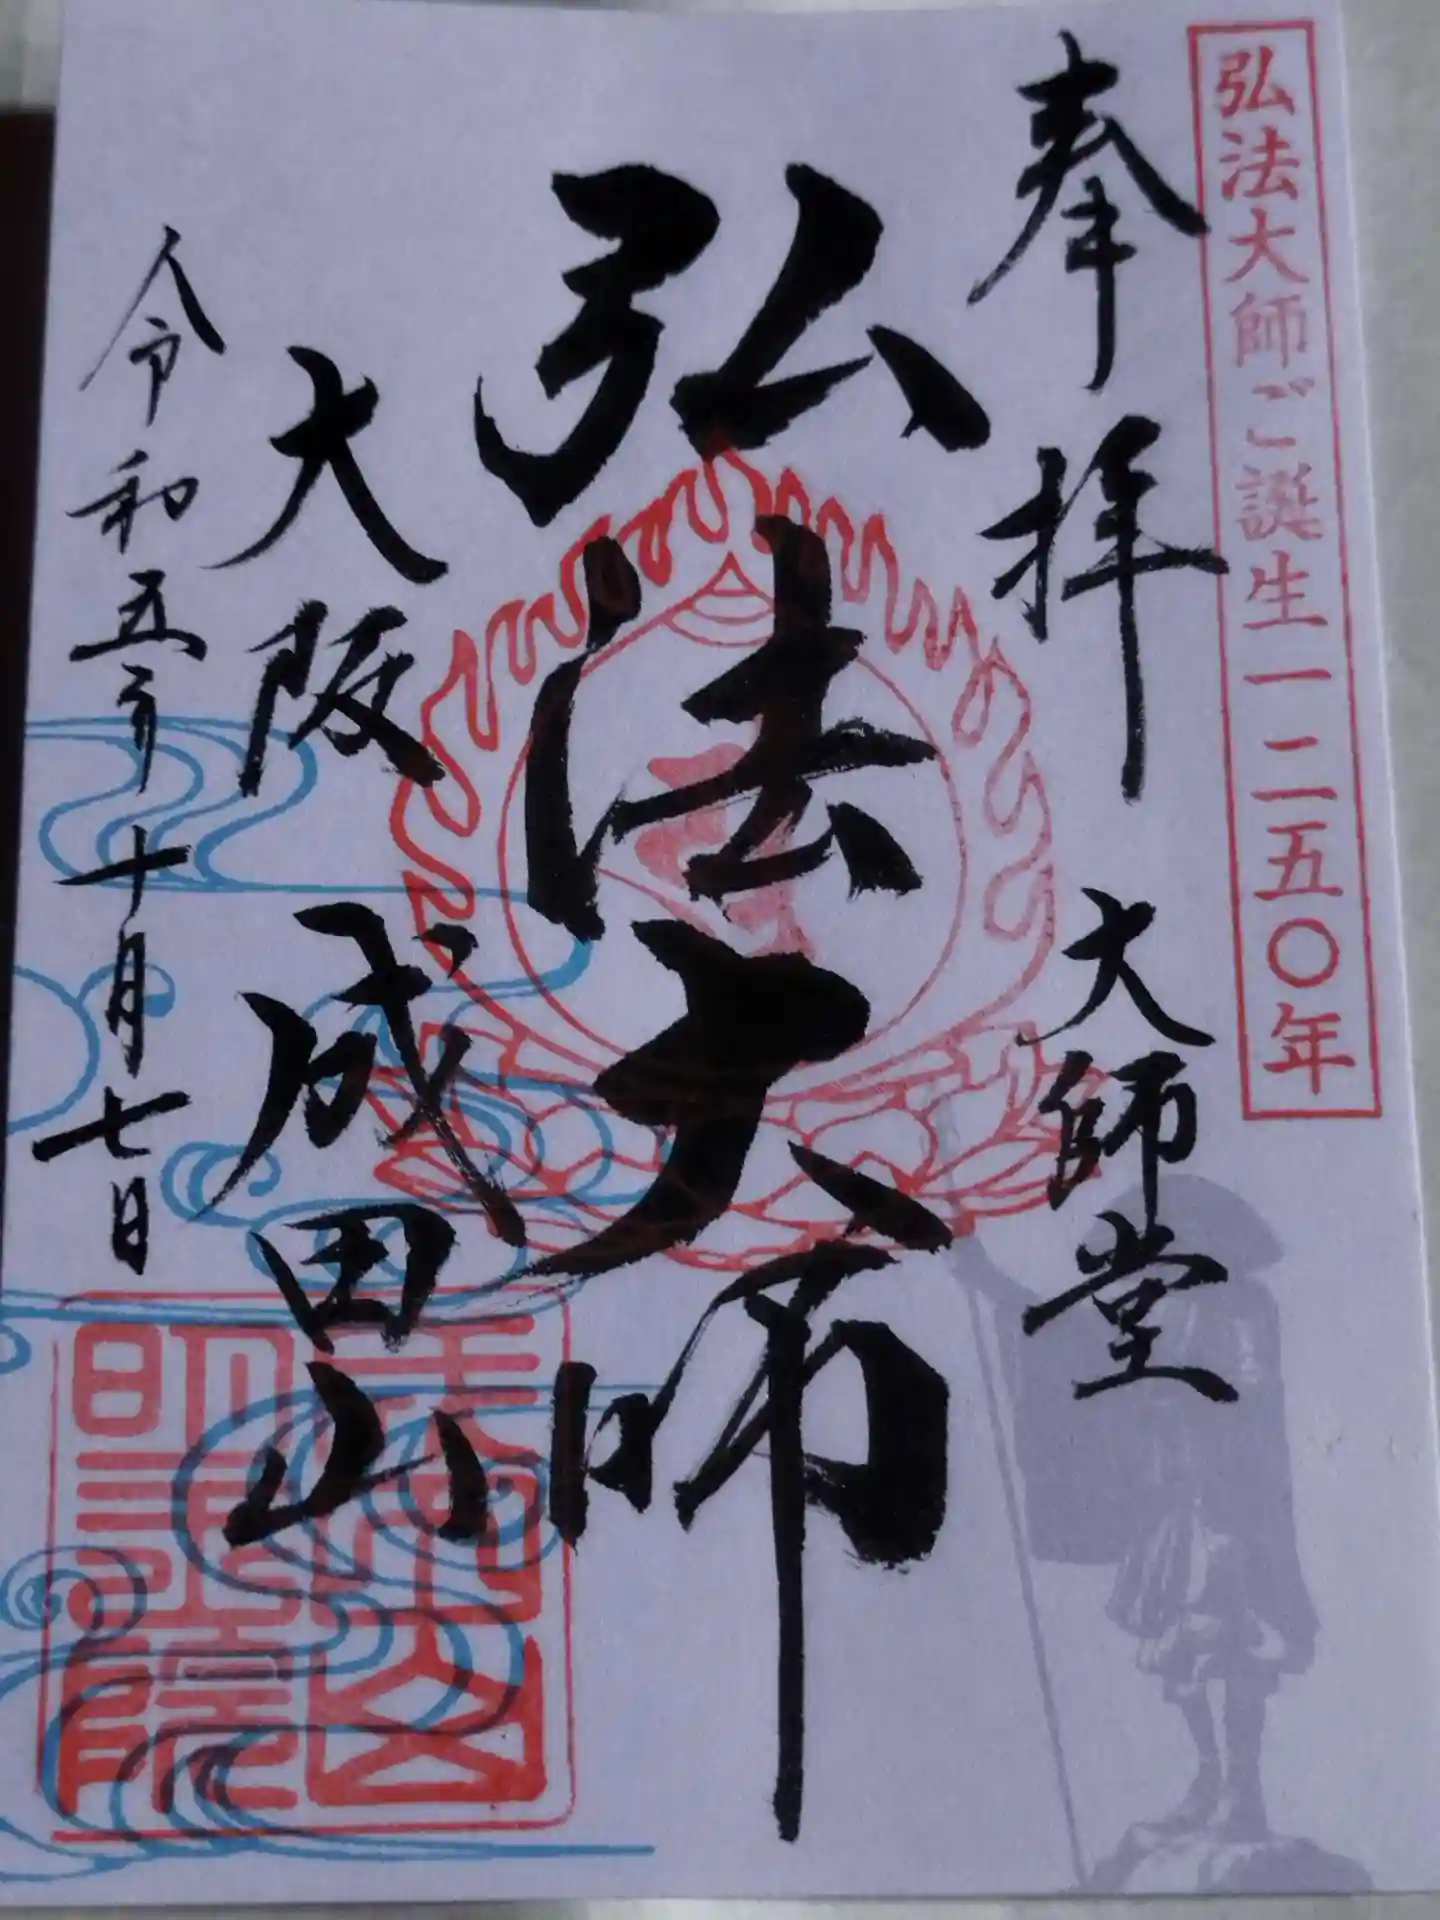 弘法大師ご誕生一二五〇年
奉拝 大師堂
弘法大師
大阪 成田山
令和五年十月七日
成田山
明王院